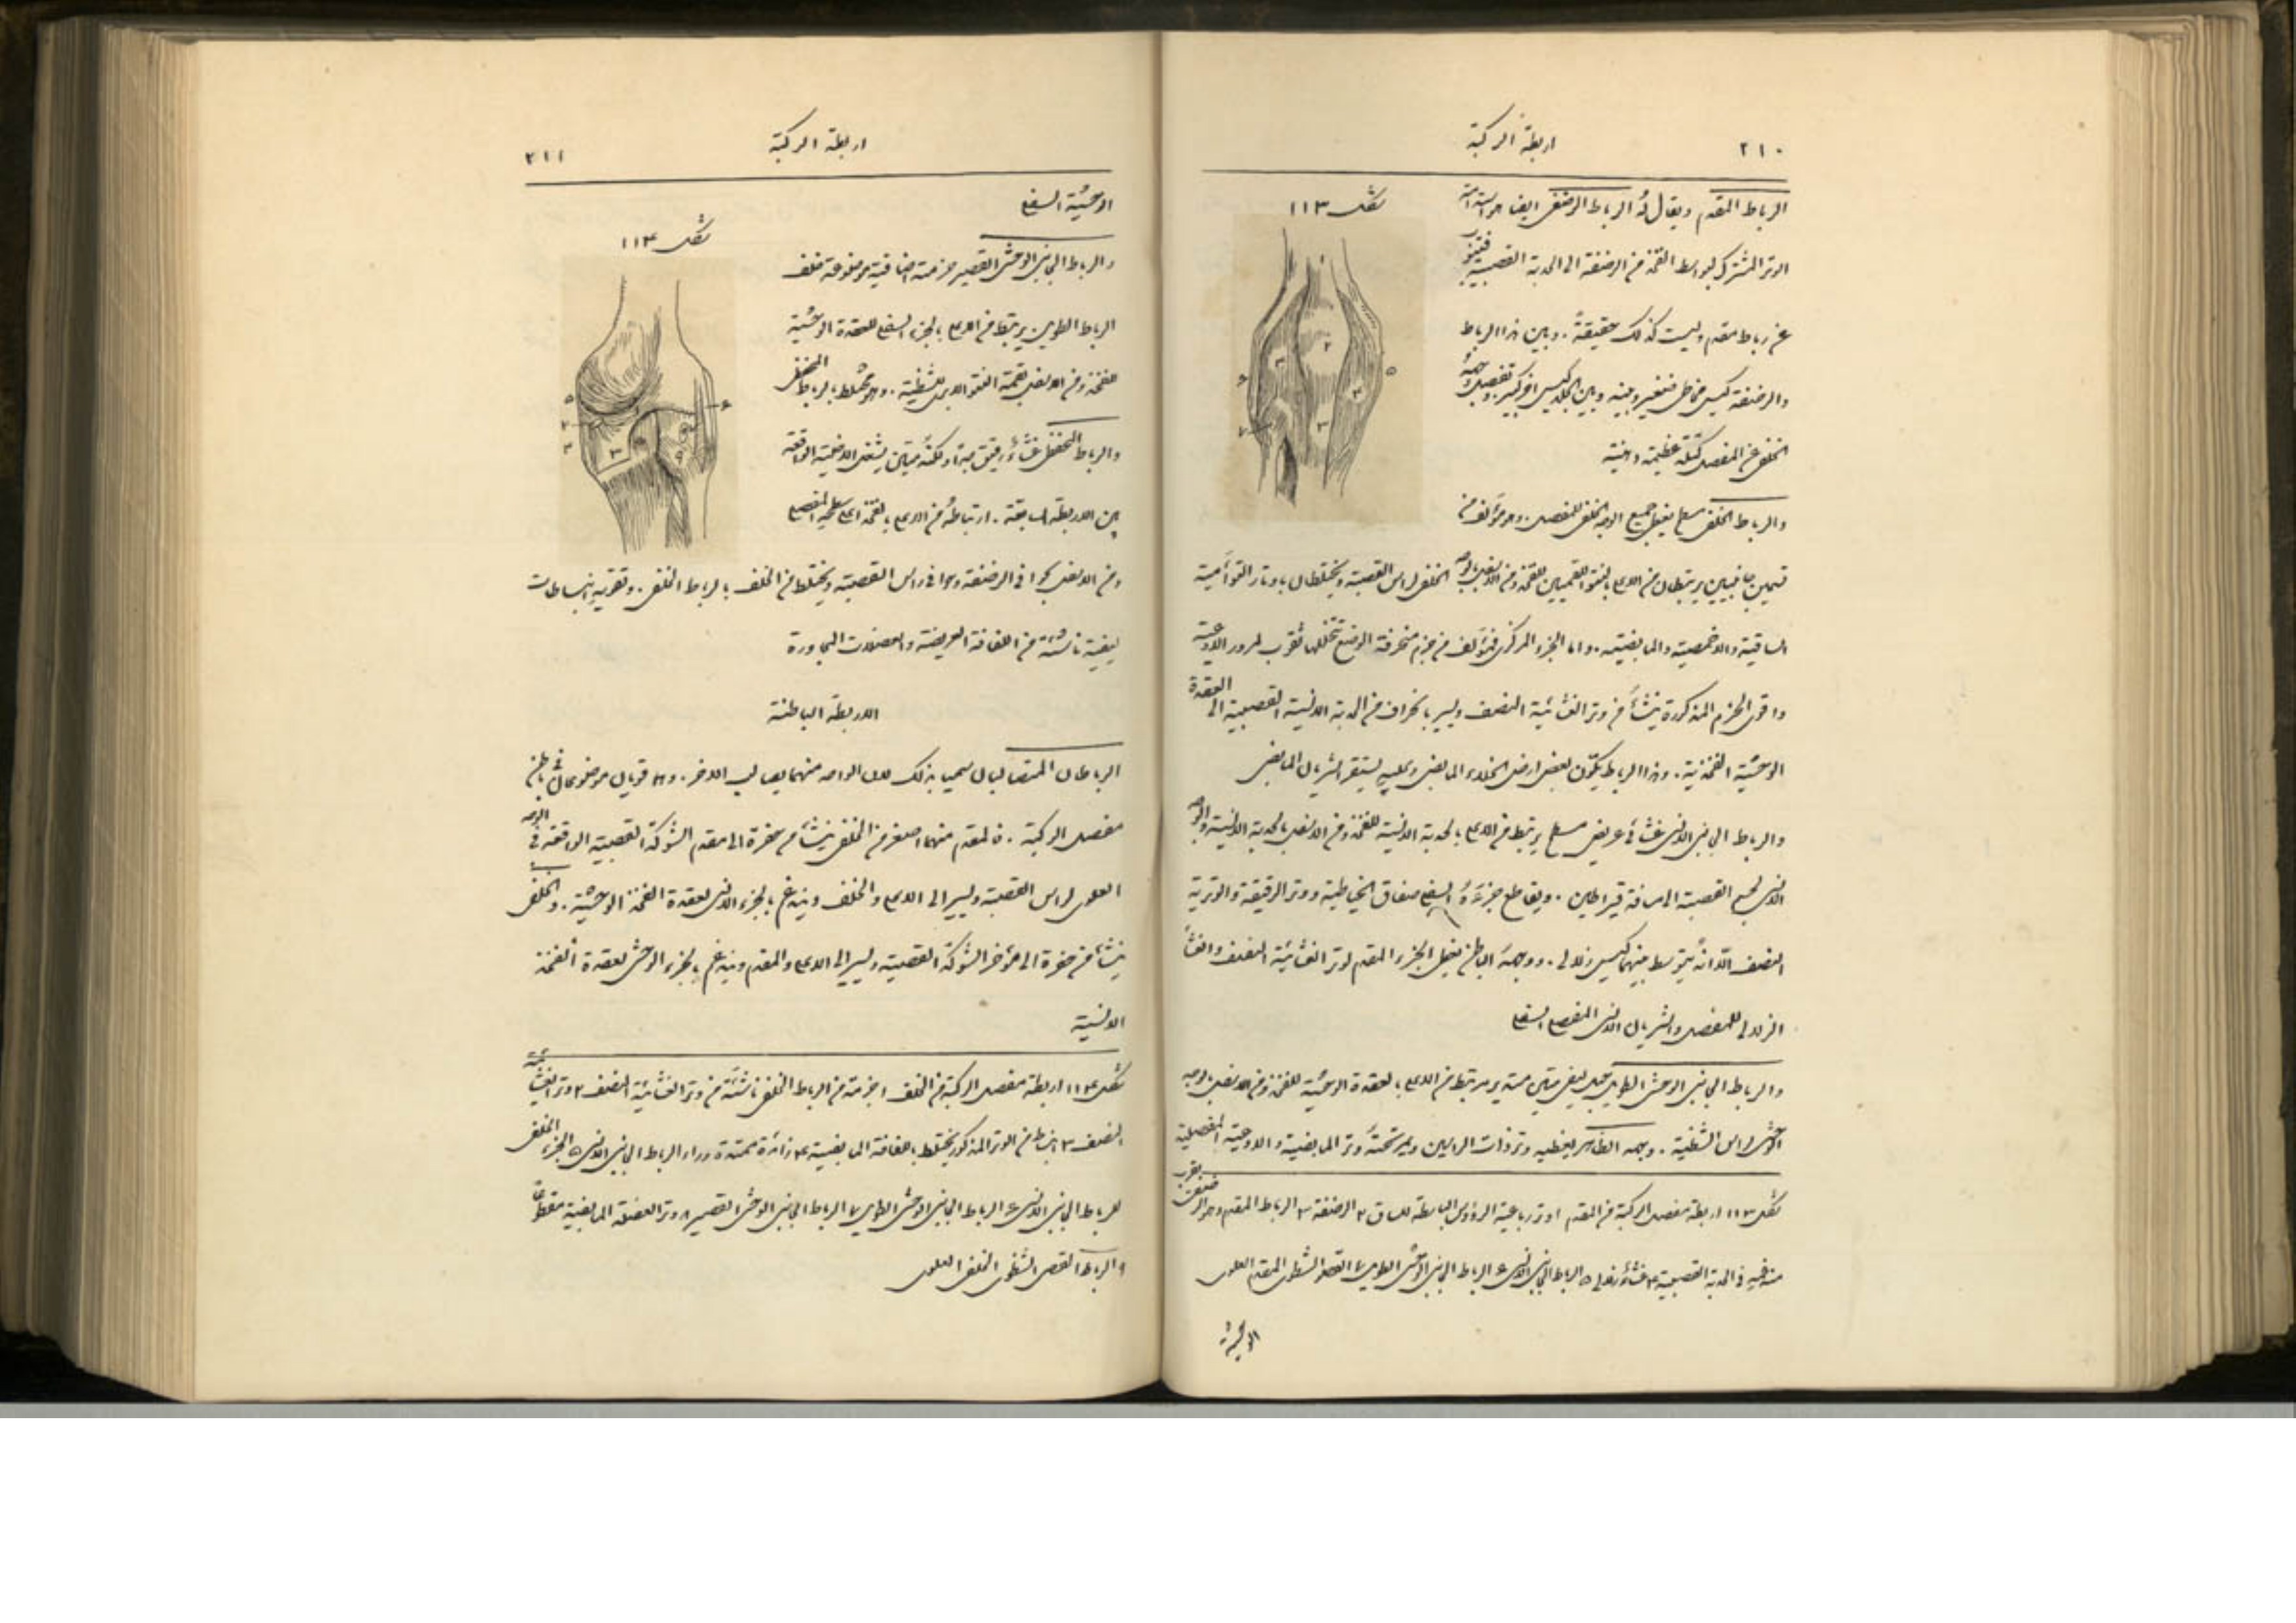 ٢١٠
اربطة الركبة
الرباط المقدم ويقال له الرباط الرضفي ايضا هو استدامة
شكل ١١٣
الوتر المشترك لبواسط الفخذ من الرضفة الى الحدبة القصبية فتنوب
عن رباط مقدم وليست كذلك حقيقةً. وبين هذا الرباط
والرضفة كيس مخاطي صغير وبينه وبين الجلد كيس اخر كبير وتفصل وجهه
الخلفي عن المفصل كتلة عظيمة دهنية
والرباط الخلفي مسطح يغطي جميع الوجه الخلفي للمفصل. وهو مؤلف من
قسمين جانبيين يرتبطان من الاعلى بالنتو اللقميين للفخذ ومن الاسفل بالوجه الخلفي لراس القصبة ويختلطان باوتار التوأمية
الساقية والاخمصية والمابضية. واما الجزء المركزي فمؤلف من حزم منحرفة الوضع تتخللها ثقوب لمرور الاوعية
واقوى الحزم المذكورة ينشأ من وتر الغشائية النصف ويسير بانحراف من الحدبة الانسية القصبية الى العقدة
الوحشية الفخذية. وهذا الرباط يكوّن بعض ارض الخلاء المابضي وعليه يستقر الشريان المابضي
والرباط الجانبي الانسي غشائي عريض مسطح يرتبط من الاعلى بالحدبة الانسية للفخذ ومن الاسفل بالحدبة الانسية والوجه
الانسي لجسم القصبة الى مسافة قيراطين. ويقاطع جزءهُ السفلي صفاق الخياطية ووتر الرقيقة والوترية
النصف الا انه يتوسط بينهما كيس زلالي. ووجهه الباطن يغطي الجزء المقدم لوتر الغشائية النصف والغشا
الزلالي للمفصل والشريان الانسي المفصلي السفلي
والرباط الجانبي الوحشي الطويل حبل ليفي متين مستدير يرتبط من الاعلى بالعقدة الوحشية للفخذ ومن الاسفل بالوجه
الوحشي لراس الشظية. ووجهه الظاهر يغطيه وتر ذات الراسين ويمر تحته وتر المابضية والاوعية المفصلية
شكل ١١٣ اربطة مفصل الركبة من المقدم ١ وتر رباعية الرؤوس الباسطة للساق ٢ الرضفة ٣ الرباط المقدم وهو الرضفي بقرب
مندغمه في الحدبة القصبية ٤ غشاء زلالي ٥ الرباط الجانبي الانسي ٦ الرباط الجانبي الوحشي الطويل ٧ القصبي الشظي المقدم العلوي
اربطة الركبة
٢١١
الوحشية السفلى
شكل ١١٤
والرباط الجانبي الوحشي القصير حزمة اضافية موضوعة خلف
الرباط الطويل يرتبط من الاعلى بالجزء السفلي للعقدة الوحشية
للفخذ ومن الاسفل بقمة النتو الابري للشظية. وهو مختلط بالرباط المحفظي
والرباط المحفظي غشاء رقيق جدا ولكنه متين يشغل الاخلية الواقعة
بين الاربطة السابقة. ارتباطه من الاعلى بالفخذ اعلى سطحه المفصلي
ومن الاسفل بحوافي الرضفة وحوافي راس القصبة ويختلط من الخلف بالرباط الخلفي. وتقويه انبساطات
ليفية ناشئة من اللفافة العريضة والعضلات المجاورة
الاربطة الباطنة
الرباطان المتصالبان سميا بذلك لان الواحد منهما يصالب الاخر. وهما قويان موضوعان في باطن
مفصل الركبة. فالمقدم منهما اصغر من الخلفي ينشأ من حفرة الى مقدم الشوكة القصبية الواقعة في الوجه
العلوي لراس القصبة ويسير الى الاعلى والخلف ويندغم بالجزء الانسي لعقدة الفخذ الوحشية. والخلفي
ينشأ من حفرة الى مؤخر الشوكة القصبية ويسير الى الاعلى والمقدم ويندغم بالجزء الوحشي لعقدة الفخذ
الانسية
شكل ١١٤ اربطة مفصل الركبة من الخلف ١ حزمة من الرباط الخلفي ناشئة من وتر الغشائية النصف ٢ وتر الغشائية
النصف ٣ انبساط من الوتر المذكور يختلط باللفافة المابضية ٤ زائدة ممتدة وراء الرباط الجانبي الانسي ٥ الجزء الخلفي
للرباط الجانبي الانسي ٦ الرباط الجانبي الوحشي الطويل ٧ الرباط الجانبي الوحشي القصير ٨ وتر العضلة المابضية مقطوعًا
٩ الرباط القصبي الشظوي الخلفي العلوي